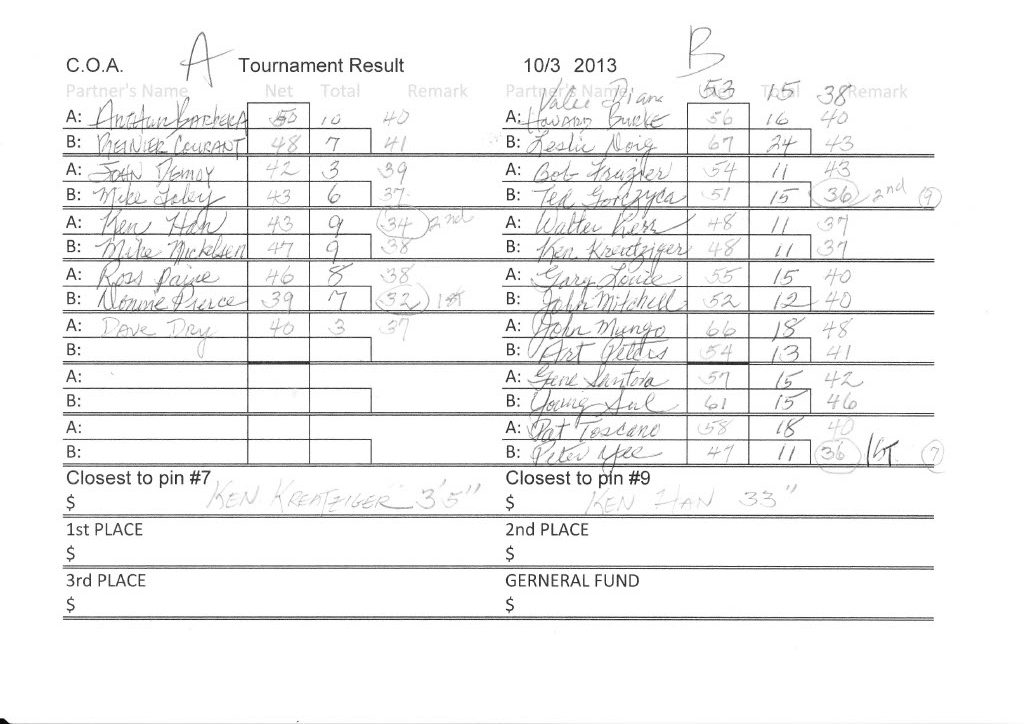 A B
C.O.A. Tournament Result 10/3 2013
Partner's Name Net Total Remark
Partner's Name Total Remark
Diane 53 15 38
A: 50 10 40
B: Courant 48 7 41
A: John 42 3 39
B: Mike Foley 43 6 37
A: Ken Han 43 9 34 2nd
B: Mike Mickelsen 47 9 38
A: Ross Paine 46 8 38
B: Vonnie Pierce 39 7 32 1st
A: Dave Dry 40 3 37
B:
A:
B:
A:
B:
A: Howard Burke 56 16 40
B: Leslie Doig 67 24 43
A: Bob Frazier 54 11 43
B: Ted Gorczyca 51 15 36 2nd (9)
A: Walter Kerr 48 11 37
B: Ken Kreutziger 48 11 37
A: Gary Louie 55 15 40
B: John Mitchell 52 12 40
A: John Mungo 66 18 48
B: Art Peters 54 13 41
A: Gene Santora 57 15 42
B: Young Sul 61 15 46
A: Pat Toscano 58 18 40
B: Peter Yee 47 11 36 1st (7)
Closest to pin #7
$ Ken Kreatziger 3'5"
Closest to pin #9
$ Ken Han 33"
1st PLACE
$
2nd PLACE
$
3rd PLACE
$
GERNERAL FUND
$